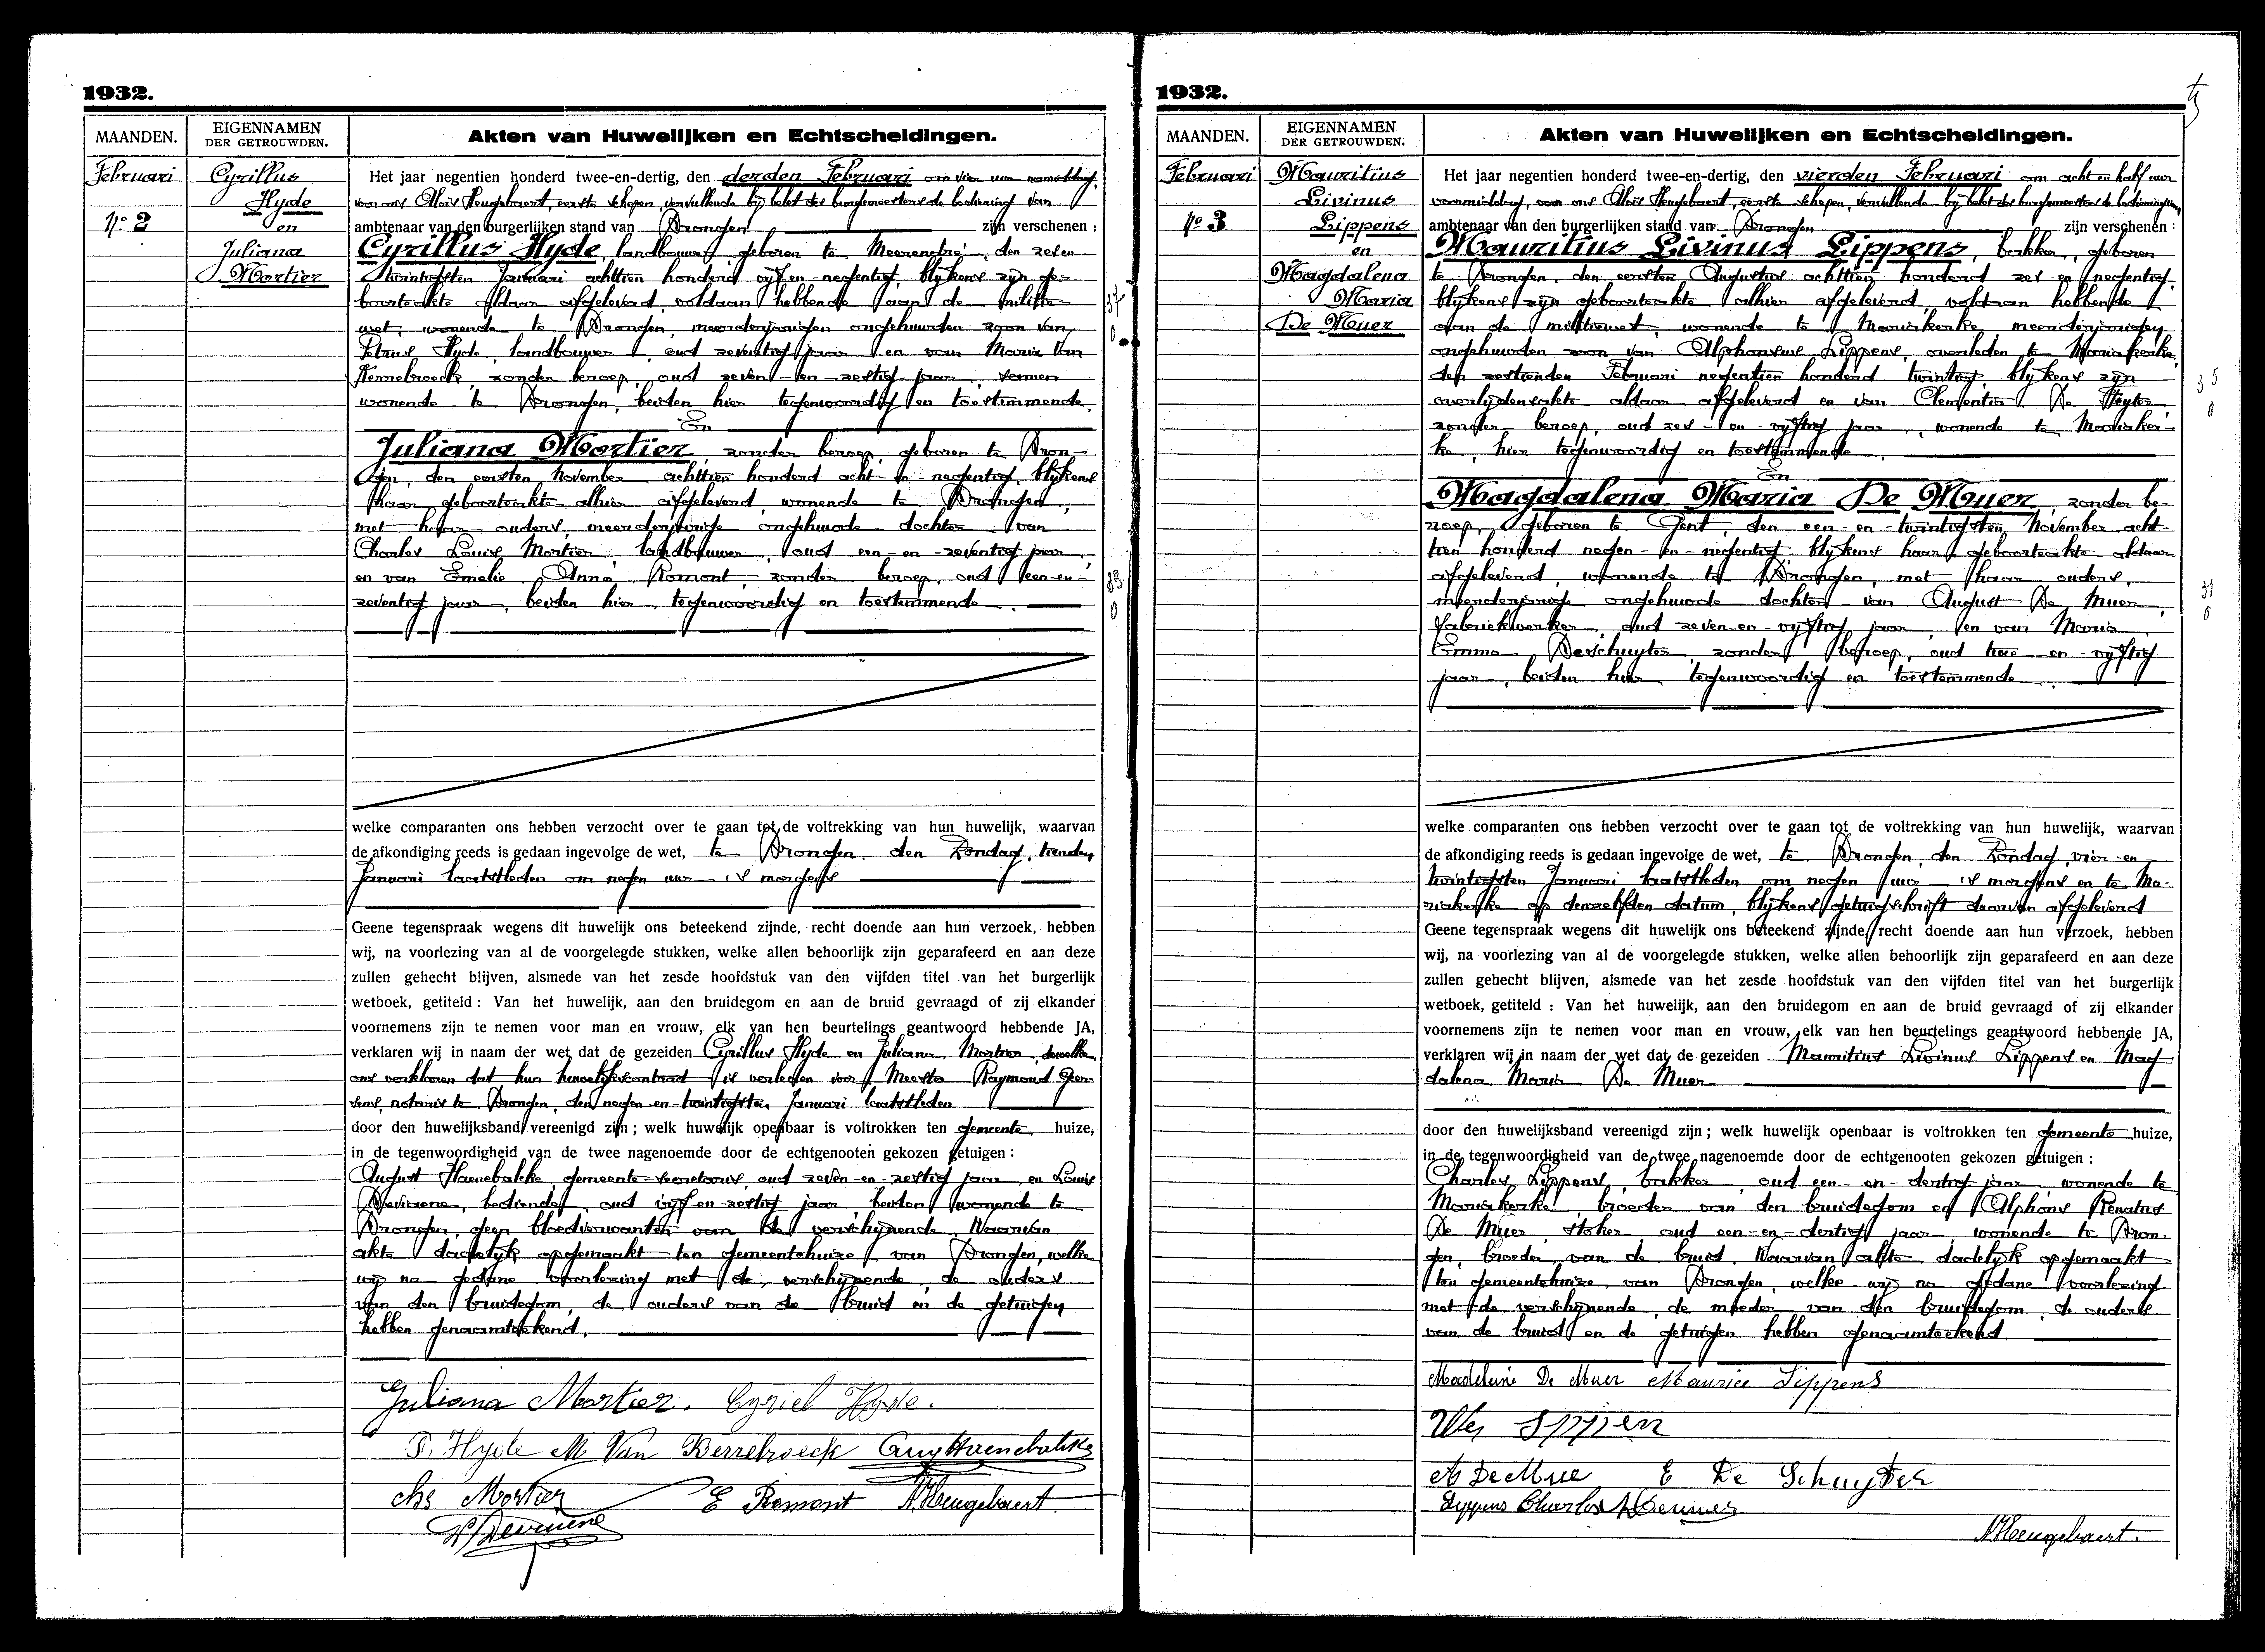 1932.
MAANDEN.
EIGENNAMEN
DER GETROUWDEN.
Akten van Huwelijken en Echtscheidingen.
Februari
No 2
Cyrillus
Hyde
en
Juliana
Mortier
Het jaar negentien honderd twee-en-dertig, den derden Februari om vier uur namiddag,
voor ons Aloïs Heugebaert, eerste schepen, vervullende bij belet des burgemeesters de bediening van
ambtenaar van den burgerlijken stand van Drongen zijn verschenen :
Cyrillus Hyde, landbouwer, geboren te Meerendré, den zeven
twintigsten Januari achttien honderd vijf-en-negentig, blijkens zijn ge-
boorteakte aldaar afgeleverd, voldaan hebbende aan de militie-
wet, wonende te Drongen, meerderjarigen ongehuwden zoon van
Petrus Hyde, landbouwer, oud zeventig jaar en van Maria Van
Kerrebroeck, zonder beroep, oud zeven-en-zestig jaar, samen
wonende te Drongen, beiden hier tegenwoordig en toestemmende.
En
Juliana Mortier, zonder beroep, geboren te Dron-
gen, den eersten November achttien honderd acht-en-negentig, blijkens
haar geboorteakte alhier afgeleverd, wonende te Drongen,
met haar ouders, meerderjarige ongehuwde dochter van
Charles Louis Mortier, landbouwer, oud een-en-zeventig jaar
en van Emelie Anna Romont, zonder beroep, oud een-en-
zeventig jaar, beiden hier tegenwoordig en toestemmende.
welke comparanten ons hebben verzocht over te gaan tot de voltrekking van hun huwelijk, waarvan
de afkondiging reeds is gedaan ingevolge de wet, te Drongen, den Zondag, tienden
Januari laatstleden om negen uur 's morgens
Geene tegenspraak wegens dit huwelijk ons beteekend zijnde, recht doende aan hun verzoek, hebben
wij, na voorlezing van al de voorgelegde stukken, welke allen behoorlijk zijn geparafeerd en aan deze
zullen gehecht blijven, alsmede van het zesde hoofdstuk van den vijfden titel van het burgerlijk
wetboek, getiteld : Van het huwelijk, aan den bruidegom en aan de bruid gevraagd of zij elkander
voornemens zijn te nemen voor man en vrouw, elk van hen beurtelings geantwoord hebbende JA,
verklaren wij in naam der wet dat de gezeiden Cyrillus Hyde en Juliana Mortier, dewelke
ons verklaren dat hun huwelijkscontract is verleden voor Meester Raymond Geer-
sens, notaris te Drongen, den negen-en-twintigsten Januari laatstleden
door den huwelijksband vereenigd zijn ; welk huwelijk openbaar is voltrokken ten gemeente huize,
in de tegenwoordigheid van de twee nagenoemde door de echtgenooten gekozen getuigen :
August Haenebalcke, gemeente-secretaris, oud zeven-en-zestig jaar, en Louis
Deviaene, bediende, oud vijf-en-zestig jaar, beiden wonende te
Drongen, geen bloedverwanten van de verschijnende. Waarvan
akte dadelijk opgemaakt ten gemeentehuize van Drongen, welke
wij na gedane voorlezing met de verschijnende, de ouders
van den bruidegom, de ouders van de bruid en de getuigen
hebben genaamteekend.
Juliana Mortier. Cyriel Hyde.
P. Hyde M Van Kerrebroeck Aug Haenebalcke
Chs Mortier E Romont A. Heugebaert
L. Deviaene
1932.
MAANDEN.
EIGENNAMEN
DER GETROUWDEN.
Akten van Huwelijken en Echtscheidingen.
Februari
No 3
Mauritius
Livinus
Lippens
en
Magdalena
Maria
De Muer
Het jaar negentien honderd twee-en-dertig, den vierden Februari om acht en half uur
voormiddag, voor ons Aloïs Heugebaert, eerste schepen, vervullende bij belet des burgemeesters de bediening van
ambtenaar van den burgerlijken stand van Drongen zijn verschenen :
Mauritius Livinus Lippens, bakker, geboren
te Drongen, den eersten Augustus achttien honderd zes-en-negentig,
blijkens zijn geboorteakte alhier afgeleverd, voldaan hebbende
aan de militiewet, wonende te Mariakerke, meerderjarigen
ongehuwden zoon van Alphonsus Lippens, overleden te Mariakerke,
den zestienden Februari negentien honderd twintig, blijkens zijn
overlijdensakte aldaar afgeleverd en van Clementia De Reyter,
zonder beroep, oud zes-en-vijftig jaar, wonende te Mariaker-
ke, hier tegenwoordig en toestemmende.
En
Magdalena Maria De Muer, zonder be-
roep, geboren te Gent, den een-en-twintigsten November acht-
tien honderd negen-en-negentig, blijkens haar geboorteakte aldaar
afgeleverd, wonende te Drongen, met haar ouders,
meerderjarige ongehuwde dochter van August De Muer,
fabriekwerker, oud zeven-en-vijftig jaar, en van Maria
Emma Deschuyter, zonder beroep, oud twee-en-vijftig
jaar, beiden hier tegenwoordig en toestemmende.
welke comparanten ons hebben verzocht over te gaan tot de voltrekking van hun huwelijk, waarvan
de afkondiging reeds is gedaan ingevolge de wet, te Drongen, den Zondag, vier-en-
twintigsten Januari laatstleden om negen uur 's morgens en te Ma-
riakerke op denzelfden datum, blijkens getuigschrift daarvan afgeleverd
Geene tegenspraak wegens dit huwelijk ons beteekend zijnde, recht doende aan hun verzoek, hebben
wij, na voorlezing van al de voorgelegde stukken, welke allen behoorlijk zijn geparafeerd en aan deze
zullen gehecht blijven, alsmede van het zesde hoofdstuk van den vijfden titel van het burgerlijk
wetboek, getiteld : Van het huwelijk, aan den bruidegom en aan de bruid gevraagd of zij elkander
voornemens zijn te nemen voor man en vrouw, elk van hen beurtelings geantwoord hebbende JA,
verklaren wij in naam der wet dat de gezeiden Mauritius Livinus Lippens en Mag-
dalena Maria De Muer
door den huwelijksband vereenigd zijn ; welk huwelijk openbaar is voltrokken ten gemeente huize,
in de tegenwoordigheid van de twee nagenoemde door de echtgenooten gekozen getuigen :
Charles Lippens, bakker, oud een-en-dertig jaar, wonende te
Mariakerke broeder van den bruidegom en Alphons Renatus
De Muer, stoker, oud een-en-dertig jaar, wonende te Dron-
gen, broeder van de bruid. Waarvan akte dadelijk opgemaakt
ten gemeentehuize van Drongen, welke wij na gedane voorlezing
met de verschijnende, de moeder van den bruidegom, de ouders
van de bruid en de getuigen hebben genaamteekend.
Madeleine De Muer Maurice Lippens
E De Schuyter
Lyppens Charles
A. Heugebaert.